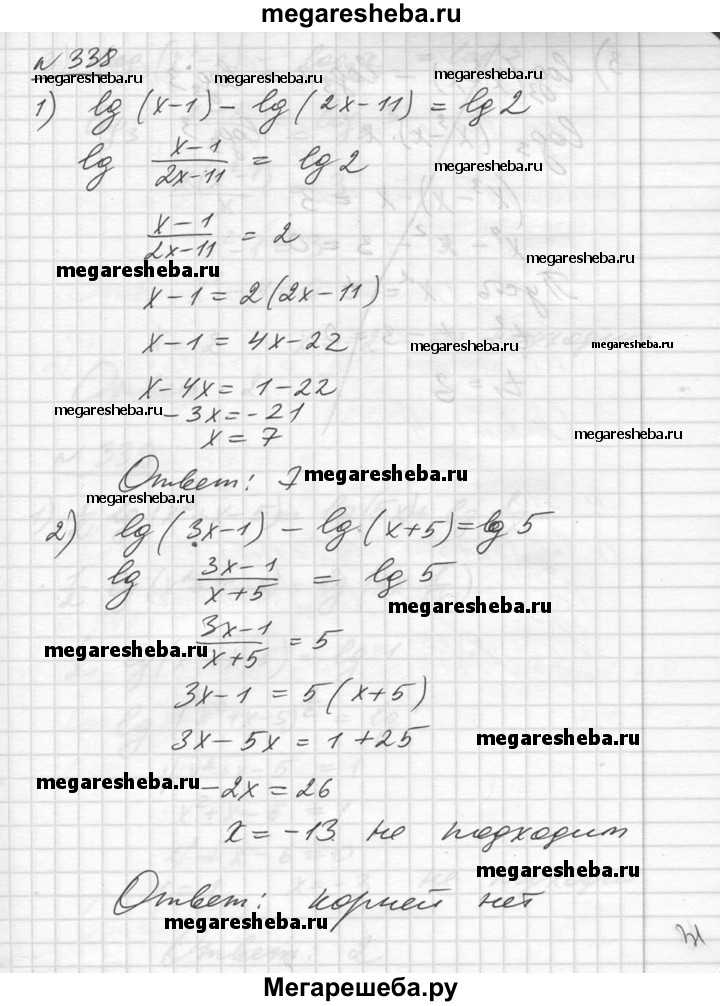 megaresheba.ru
N 338
megaresheba.ru megaresheba.ru megaresheba.ru
1) lg (x-1) - lg (2x-11) = lg 2
lg (x-1)/(2x-11) = lg 2
megaresheba.ru
(x-1)/(2x-11) = 2
megaresheba.ru megaresheba.ru
x-1 = 2(2x-11)
megaresheba.ru
x-1 = 4x-22
megaresheba.ru megaresheba.ru
x-4x = 1-22
megaresheba.ru -3x = -21
x = 7
megaresheba.ru
Ответ: 7 megaresheba.ru
megaresheba.ru megaresheba.ru
2) lg (3x-1) - lg (x+5) = lg 5
lg (3x-1)/(x+5) = lg 5
megaresheba.ru
(3x-1)/(x+5) = 5
megaresheba.ru
3x-1 = 5(x+5)
3x-5x = 1+25 megaresheba.ru
megaresheba.ru -2x = 26
x = -13 не подходит
megaresheba.ru
Ответ: корней нет
megaresheba.ru
Мегарешеба.ру